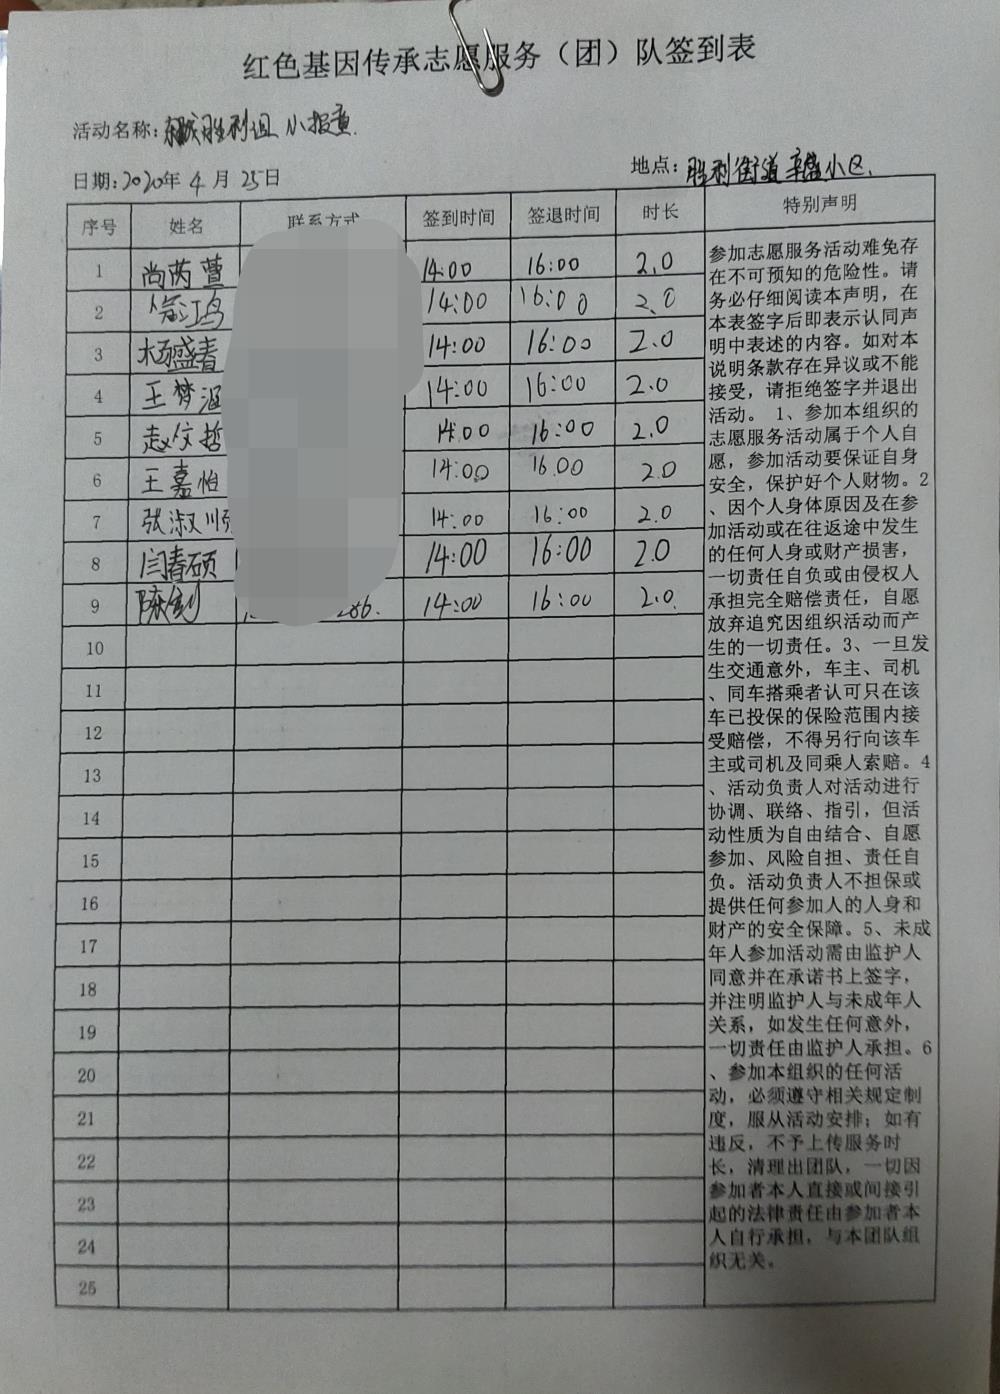 红色基因传承志愿服务（团）队签到表
活动名称: 胜利 小报童
日期: 2020年 4 月 25日
地点: 胜利街道 小区
序号 姓名 联系方式 签到时间 签退时间 时长 特别声明
1 尚芮萱 14:00 16:00 2.0
2 14:00 16:00 2.0
3 杨盛春 14:00 16:00 2.0
4 王梦涵 14:00 16:00 2.0
5 赵文哲 14:00 16:00 2.0
6 王嘉怡 14:00 16:00 2.0
7 张淑顺 14:00 16:00 2.0
8 闫春硕 14:00 16:00 2.0
9 陈剑 286. 14:00 16:00 2.0
10
11
12
13
14
15
16
17
18
19
20
21
22
23
24
25
参加志愿服务活动难免存
在不可预知的危险性。请
务必仔细阅读本声明，在
本表签字后即表示认同声
明中表述的内容。如对本
说明条款存在异议或不能
接受，请拒绝签字并退出
活动。 1、参加本组织的
志愿服务活动属于个人自
愿，参加活动要保证自身
安全，保护好个人财物。2
、因个人身体原因及在参
加活动或在往返途中发生
的任何人身或财产损害，
一切责任自负或由侵权人
承担完全赔偿责任，自愿
放弃追究因组织活动而产
生的一切责任。3、一旦发
生交通意外，车主、司机
、同车搭乘者认可只在该
车已投保的保险范围内接
受赔偿，不得另行向该车
主或司机及同乘人索赔。4
、活动负责人对活动进行
协调、联络、指引，但活
动性质为自由结合、自愿
参加、风险自担、责任自
负。活动负责人不担保或
提供任何参加人的人身和
财产的安全保障。5、未成
年人参加活动需由监护人
同意并在承诺书上签字，
并注明监护人与未成年人
关系，如发生任何意外，
一切责任由监护人承担。6
、参加本组织的任何活
动，必须遵守相关规定制
度，服从活动安排；如有
违反，不予上传服务时
长，清理出团队，一切因
参加者本人直接或间接引
起的法律责任由参加者本
人自行承担，与本团队组
织无关。